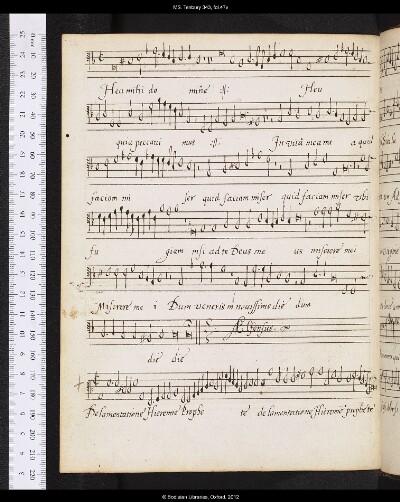 MS. Tenbury 340, fol.47v
Heu mihi do mine :||: Heu
quia peccavi nus :||: In vita mea me a quid
faciam mi ser quid faciam miser quid faciam miser ubi
fu giam nisi ad te Deus me us miserere mei
Miserere me i Dum veneris in novissimo die dum
die die
De lamentatione Hieremie Prophe te de lamentatione Hieremie prophete
© Bodleian Libraries, Oxford, 2012